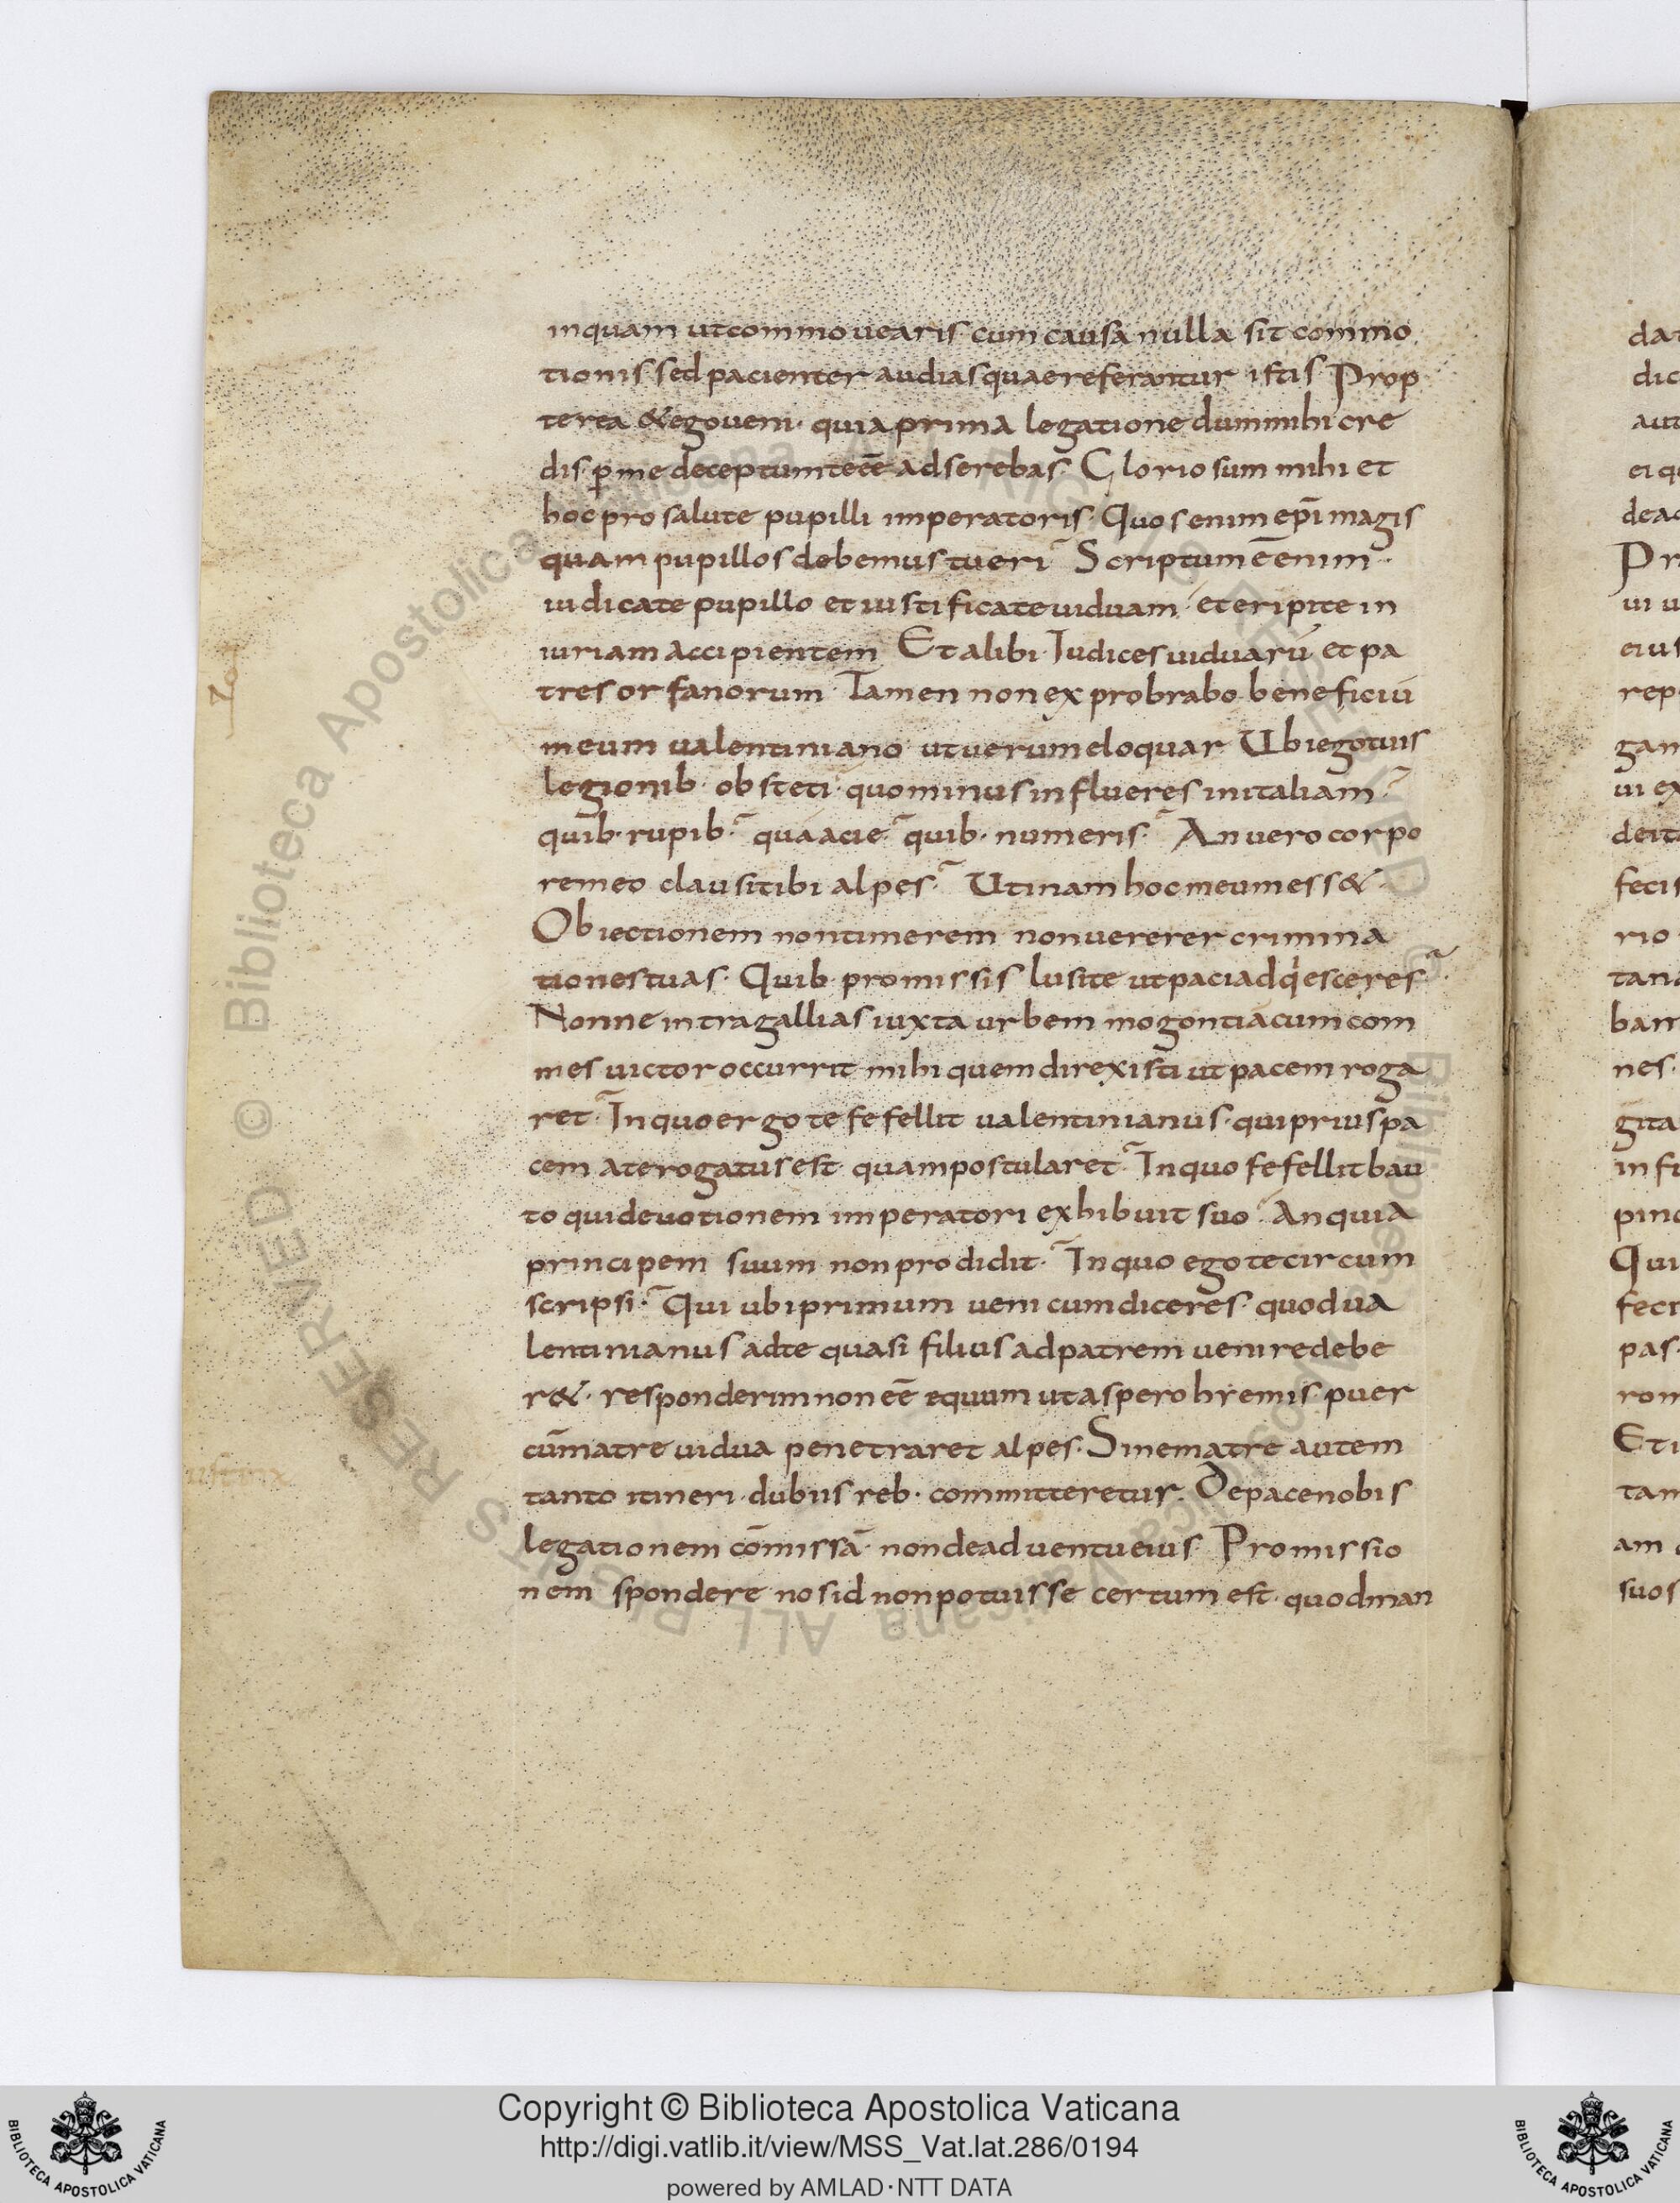 inquam ut commovearis cum causa nulla sit commo
tionis sed pacienter audias quae referantur istis Prop
terea & ego veni· quia prima legatione dum mihi cre
dis p̄ me deceptum te eē adserebas· Gloriosum mihi et
hoc pro salute pupilli imperatoris· Quos enim ep̄i magis
quam pupillos debemus tueri Scriptum ē enim·
iudicate pupillo et iustificate uiduam· et eripite in
iuriam accipientem Et alibi· Iudices uiduarū et pa
tres orfanorum· Tamen non exprobrabo beneficiū
meum ualentiniano ut uerum eloquar Ubi ego tuis
legionib· obsteti· quominus influeres in italiam·
quib· rupib· qua acie· quib· numeris· An uero corpo
re meo clausi tibi alpes· Utinam hoc meum ess&·
Obiectionem non timerem non uererer crimina
tiones tuas· Quib· promissis lusi te ut paci adq'esceres·
Nonne intra gallias iuxta urbem mogontiacum com
mes uictor occurrit mihi quem direxisti ut pacem roga
ret· In quo ergo te fefellit ualentinianus· qui prius pa
cem a te rogatus est· quam postularet· In quo fefellit bau
to qui deuotionem imperatori exhibuit suo· An quia
principem suum non prodidit· In quo ego te circum
scripsi· Qui ubi primum ueni cum diceres· quod ua
lentinianus ad te quasi filius ad patrem uenire debe
r&· responderim non eē equum ut aspero hyemis puer
cū matre uidua penetraret alpes· Sine matre autem
tanto itineri dubiis reb· committeretur· De pace nobis
legationem cōmissā· non de aduentu eius Promissio
nem spondere nos id non potuisse certum est· quod man
da
dic
aut
ei q
dea
Pr
ui u
eius
rep
gan
ui ex
deit
fecis
rio
tan
ban
nes·
gita
in fi
pinc
Qui
feci
pas·
ron
Et i
tam
am
suos
© Biblioteca Apostolica Vaticana ALL RIGHTS RESERVED
Copyright © Biblioteca Apostolica Vaticana
http://digi.vatlib.it/view/MSS_Vat.lat.286/0194
powered by AMLAD·NTT DATA
BIBLIOTECA APOSTOLICA VATICANA
BIBLIOTECA APOSTOLICA VATICANA